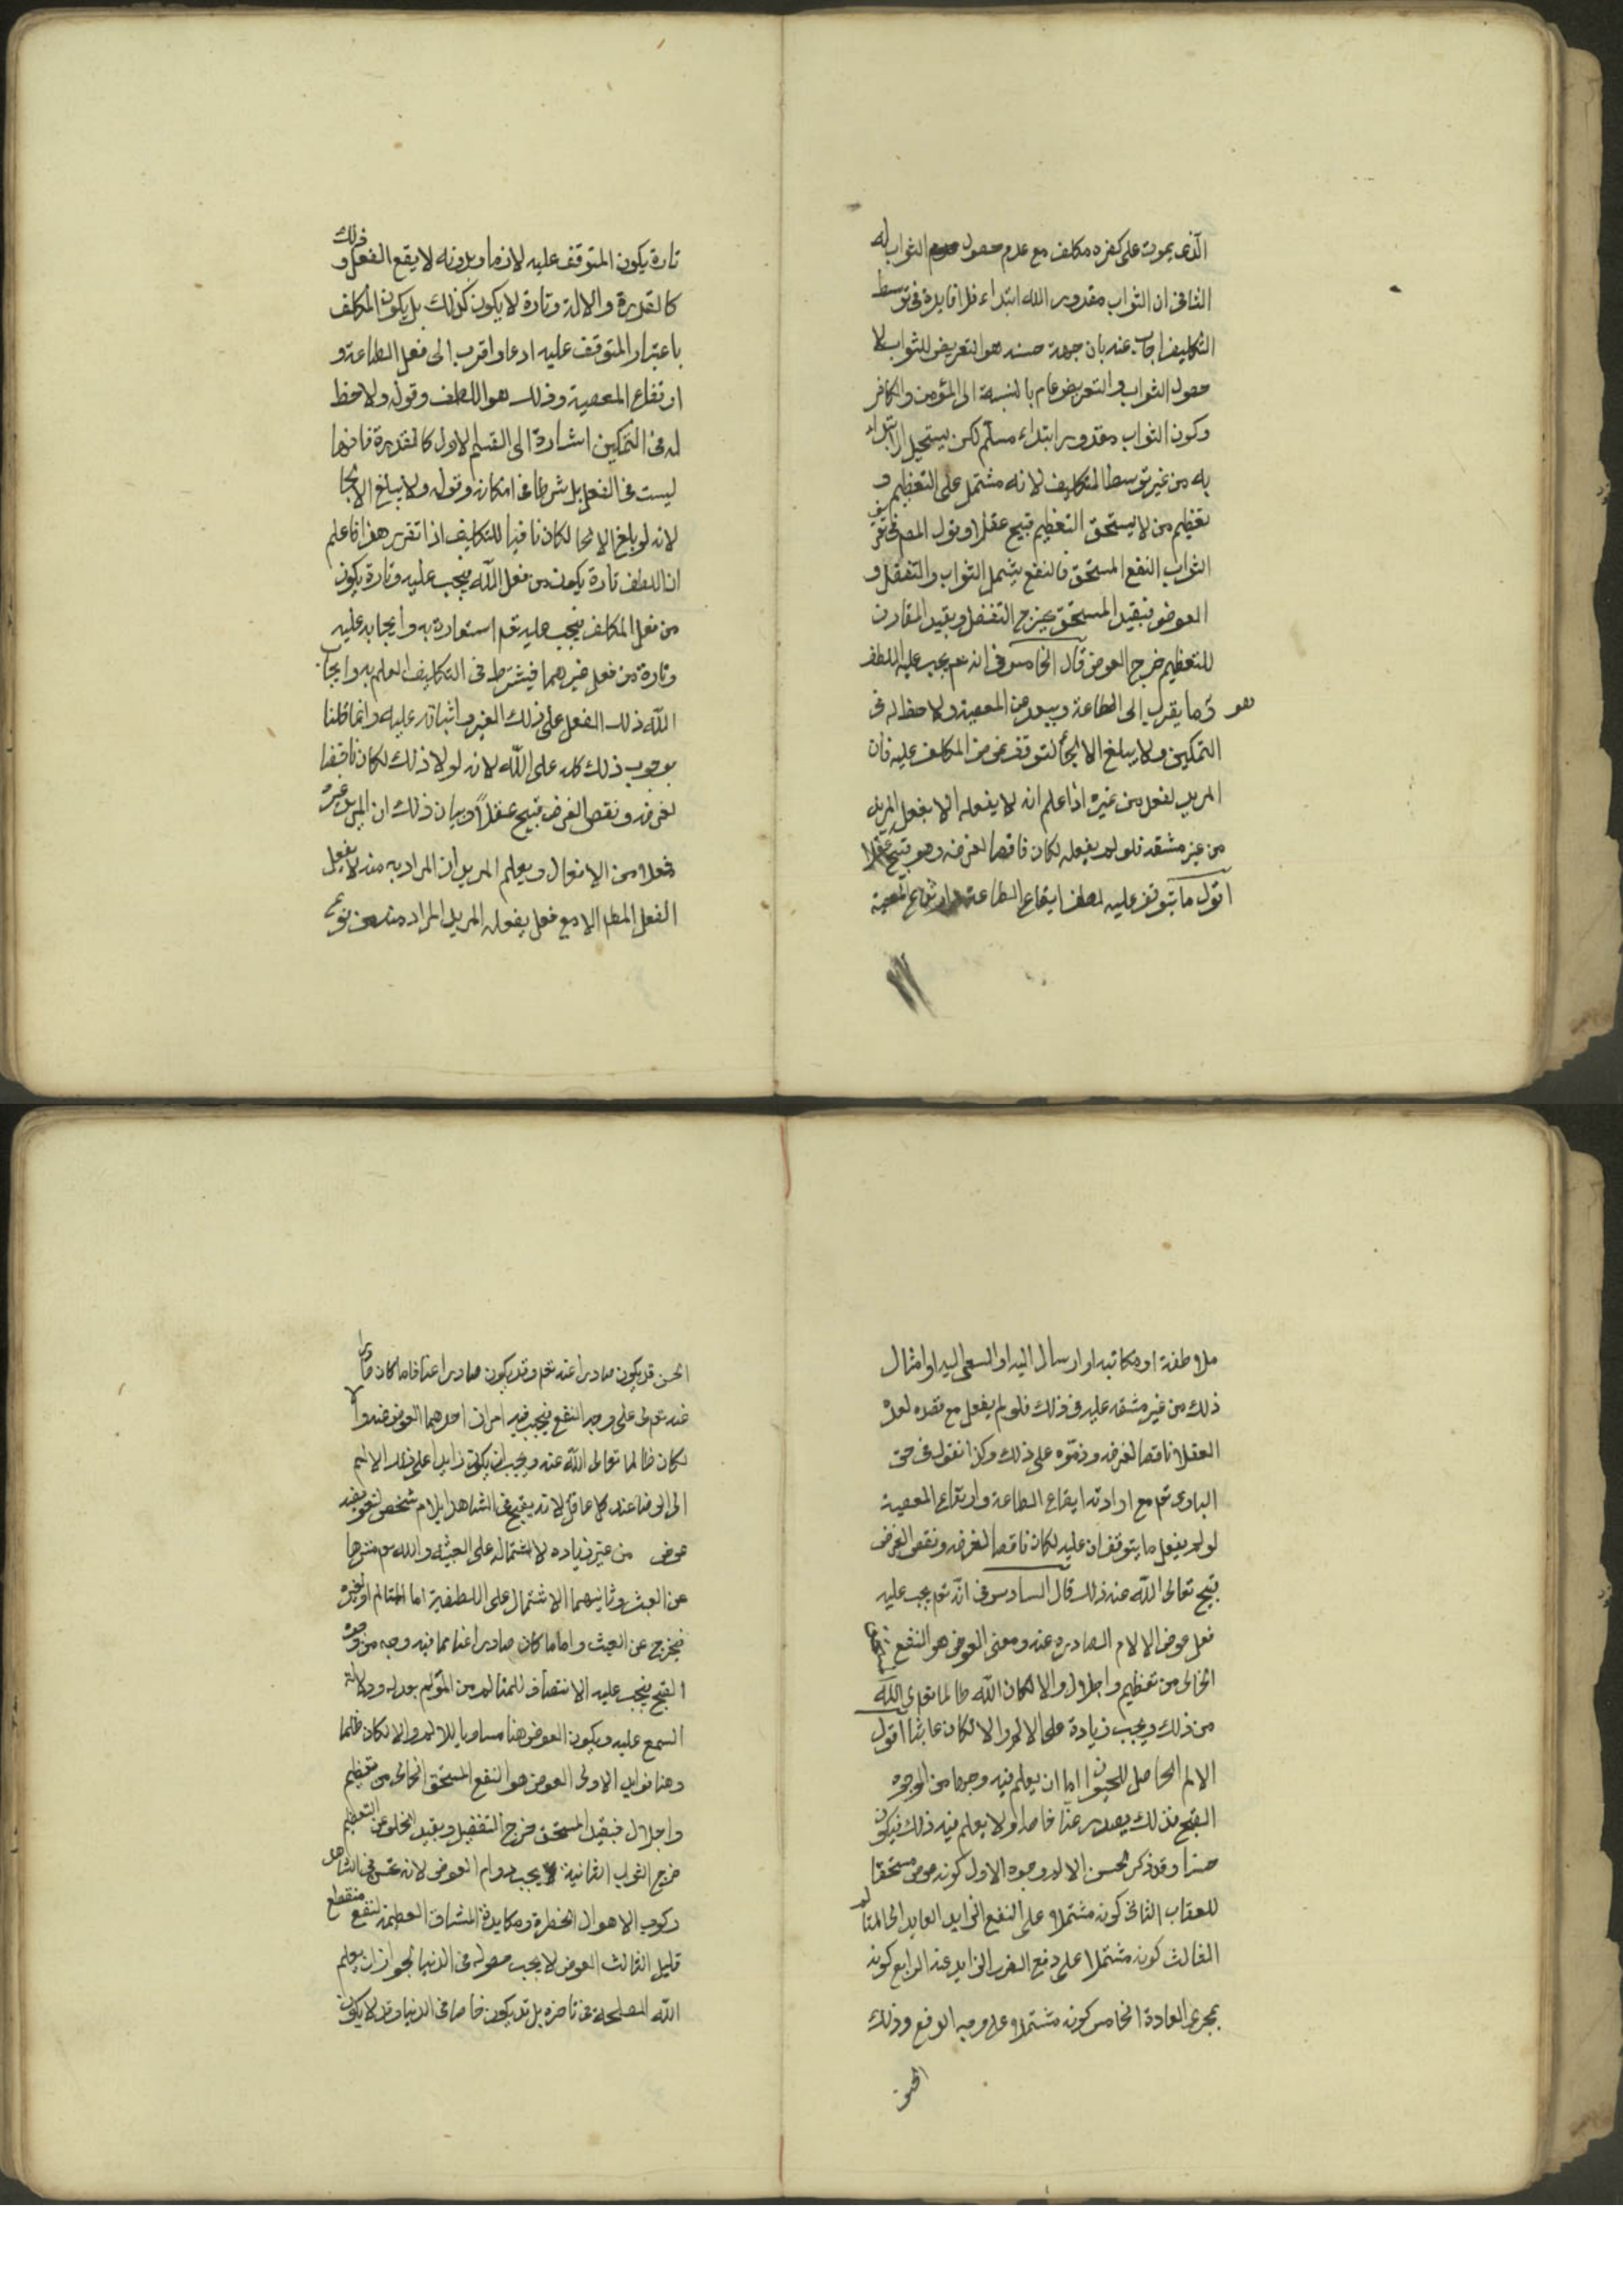 الذى يموت على كفره مكلف مع عدم حصول الثواب له
الثانى ان الثواب مقدور الله ابتداء فلا فايدة فى توسط
التكليف اجاب عنه بان جهة حسنه هو التعريض للثواب لا
حصول الثواب والتعريض عام بالنسبة الى المؤمن والكافر
وكون الثواب مقدور ابتداء مسلم لكن يستحيل الابتداء
به من غير توسط التكليف لانه مشتمل على التعظيم و
تعظيم من لا يستحق التعظيم قبيح عقلا وقول المصنف فى
الثواب النفع المستحق فالنفع يشمل الثواب والتفضل و
العوض فبقيد المستحق يخرج التفضل وبقيد المقارن
للتعظيم خرج العوض قال الخامس فى انه تع يجب عليه اللطف
هو ما يقرب الى الطاعة ويبعد عن المعصية ولا حظ له فى
التمكين ولا يبلغ الالجأ لتوقف غرض المكلف عليه فان
المريد لفعل من غيره اذا علم انه لا يفعله الا بفعل المريد
من غير مشقة فلو لم يفعله لكان ناقضا لغرضه وهو قبيح عقلا
اقول ما يتوقف عليه ايقاع الطاعة وارتفاع المعصية
تارة يكون المتوقف عليه لازما وبدونه لا يقع الفعل وذلك
كالقدرة والالة وتارة لا يكون كذلك بل يكون المكلف
باعتبار المتوقف عليه ادعا واقرب الى فعل الطاعة و
ارتفاع المعصية وذلك هو اللطف وقوله ولا حظ
له فى التمكين اشارة الى القسم الاول كالقدرة فانها
ليست فى الفعل بل شرطا فى امكانه وقوله ولا يبلغ الالجا
لانه لو بلغ الالجا لكان نافيا للتكليف اذا تقرر هذا فاعلم
ان اللطف تارة يكون من فعل الله فيجب عليه وتارة يكون
من فعل المكلف فيجب عليه تع اشعاره به وايجابه عليه
وتارة من فعل غيرهما فيشترط فى التكليف العلم به وايجاب
الله ذلك الفعل على ذلك الغير واثباته عليه وانما قلنا
بوجوب ذلك كله على الله لانه لولا ذلك لكان ناقضا
لغرضه ونقض الغرض قبيح عقلاً وبيان ذلك ان المريد من غيره
فعلا من الافعال ويعلم المريد ان المراد منه لا يفعل
الفعل المط الا مع فعل يفعله المريد المراد منه من نوع
ملاطفة او مكاتبه او ارسال اليه او السعى اليه او امثال
ذلك من غير مشقه عليه فى ذلك فلو لم يفعل مع لعده
العقلا ناقضا لغرضه وذموه على ذلك وكذا نقول فى حق
البارى تع مع ارادته ايقاع الطاعة وارتفاع المعصية
لو لم يفعل ما يتوقفان عليه لكان ناقضا لغرضه ونقض الغرض
قبيح تعالى الله عنه ذلك قال السادس فى انه تع يجب عليه
فعل عوض الالام الصادره عنه ومعنى العوض هو النفع
الخالى من تعظيم واجلال والا لكان الله ظالما تعالى الله
من ذلك ويجب زيادة على الالم والا لكان عابثا اقول
الالم الحاصل للحيوان اما ان يعلم فيه وجها من الوجوه
القبح فذلك يصدر عنا خاصة او لا يعلم فيه ذلك فيكون
حسنا وقد ذكر لحسن الالم وجوه الاول كونه مستحقا
للعقاب الثانى كونه مشتملا على النفع الزايد العايد الى المتالم
الثالث كونه مشتملا على دفع الضرر الزايد عنه الرابع كونه
بمجرى العادة الخامس كونه مشتملا على وجه الدفع وذلك
الحسن
الحسن قد يكون صادرا عنه تع وقد يكون صادرا عنا فاما كان صادرا
عنه تع على وجه النفع فيجب فيه امران احدهما العوض عنه والا
لكان ظالما تعالى الله عنه ويجب ان يكون زايدا على الالم
الى الرضا عند كل عاقل لانه يقبح فى الشاهد ايلام شخص لتعويضه
عوض من غير زياده لاشتماله على العبثيه والله تع منزها
عن العبث وثانيهما الاشتمال على اللطفية اما للمتالم او لغيره
فيخرج عن العبث واما ما كان صادرا عنا مما فيه وجه من وجوه
القبح فيجب عليه الانتصاف للمتالم من المؤلم بعدله ودلالة
السمع عليه ويكون العوض هنا مساويا للالم والا لكان ظلما
وهنا فوايد الاولى العوض هو النفع المستحق الخالى من تعظيم
واجلال فبقيد المستحق خرج التفضل وبقيد الخلو عن التعظيم
خرج الثواب الثانية لا يجب دوام العوض لانه يحسن فى الشاهد
ركوب الاهوال الخطرة ومكايدة المشاق العظيمة لنفع منقطع
قليل الثالث العوض لا يجب حصوله فى الدنيا لجواز ان يعلم
الله المصلحة فى تاخره بل قد يكون خاصا فى الدنيا وقد لا يكون